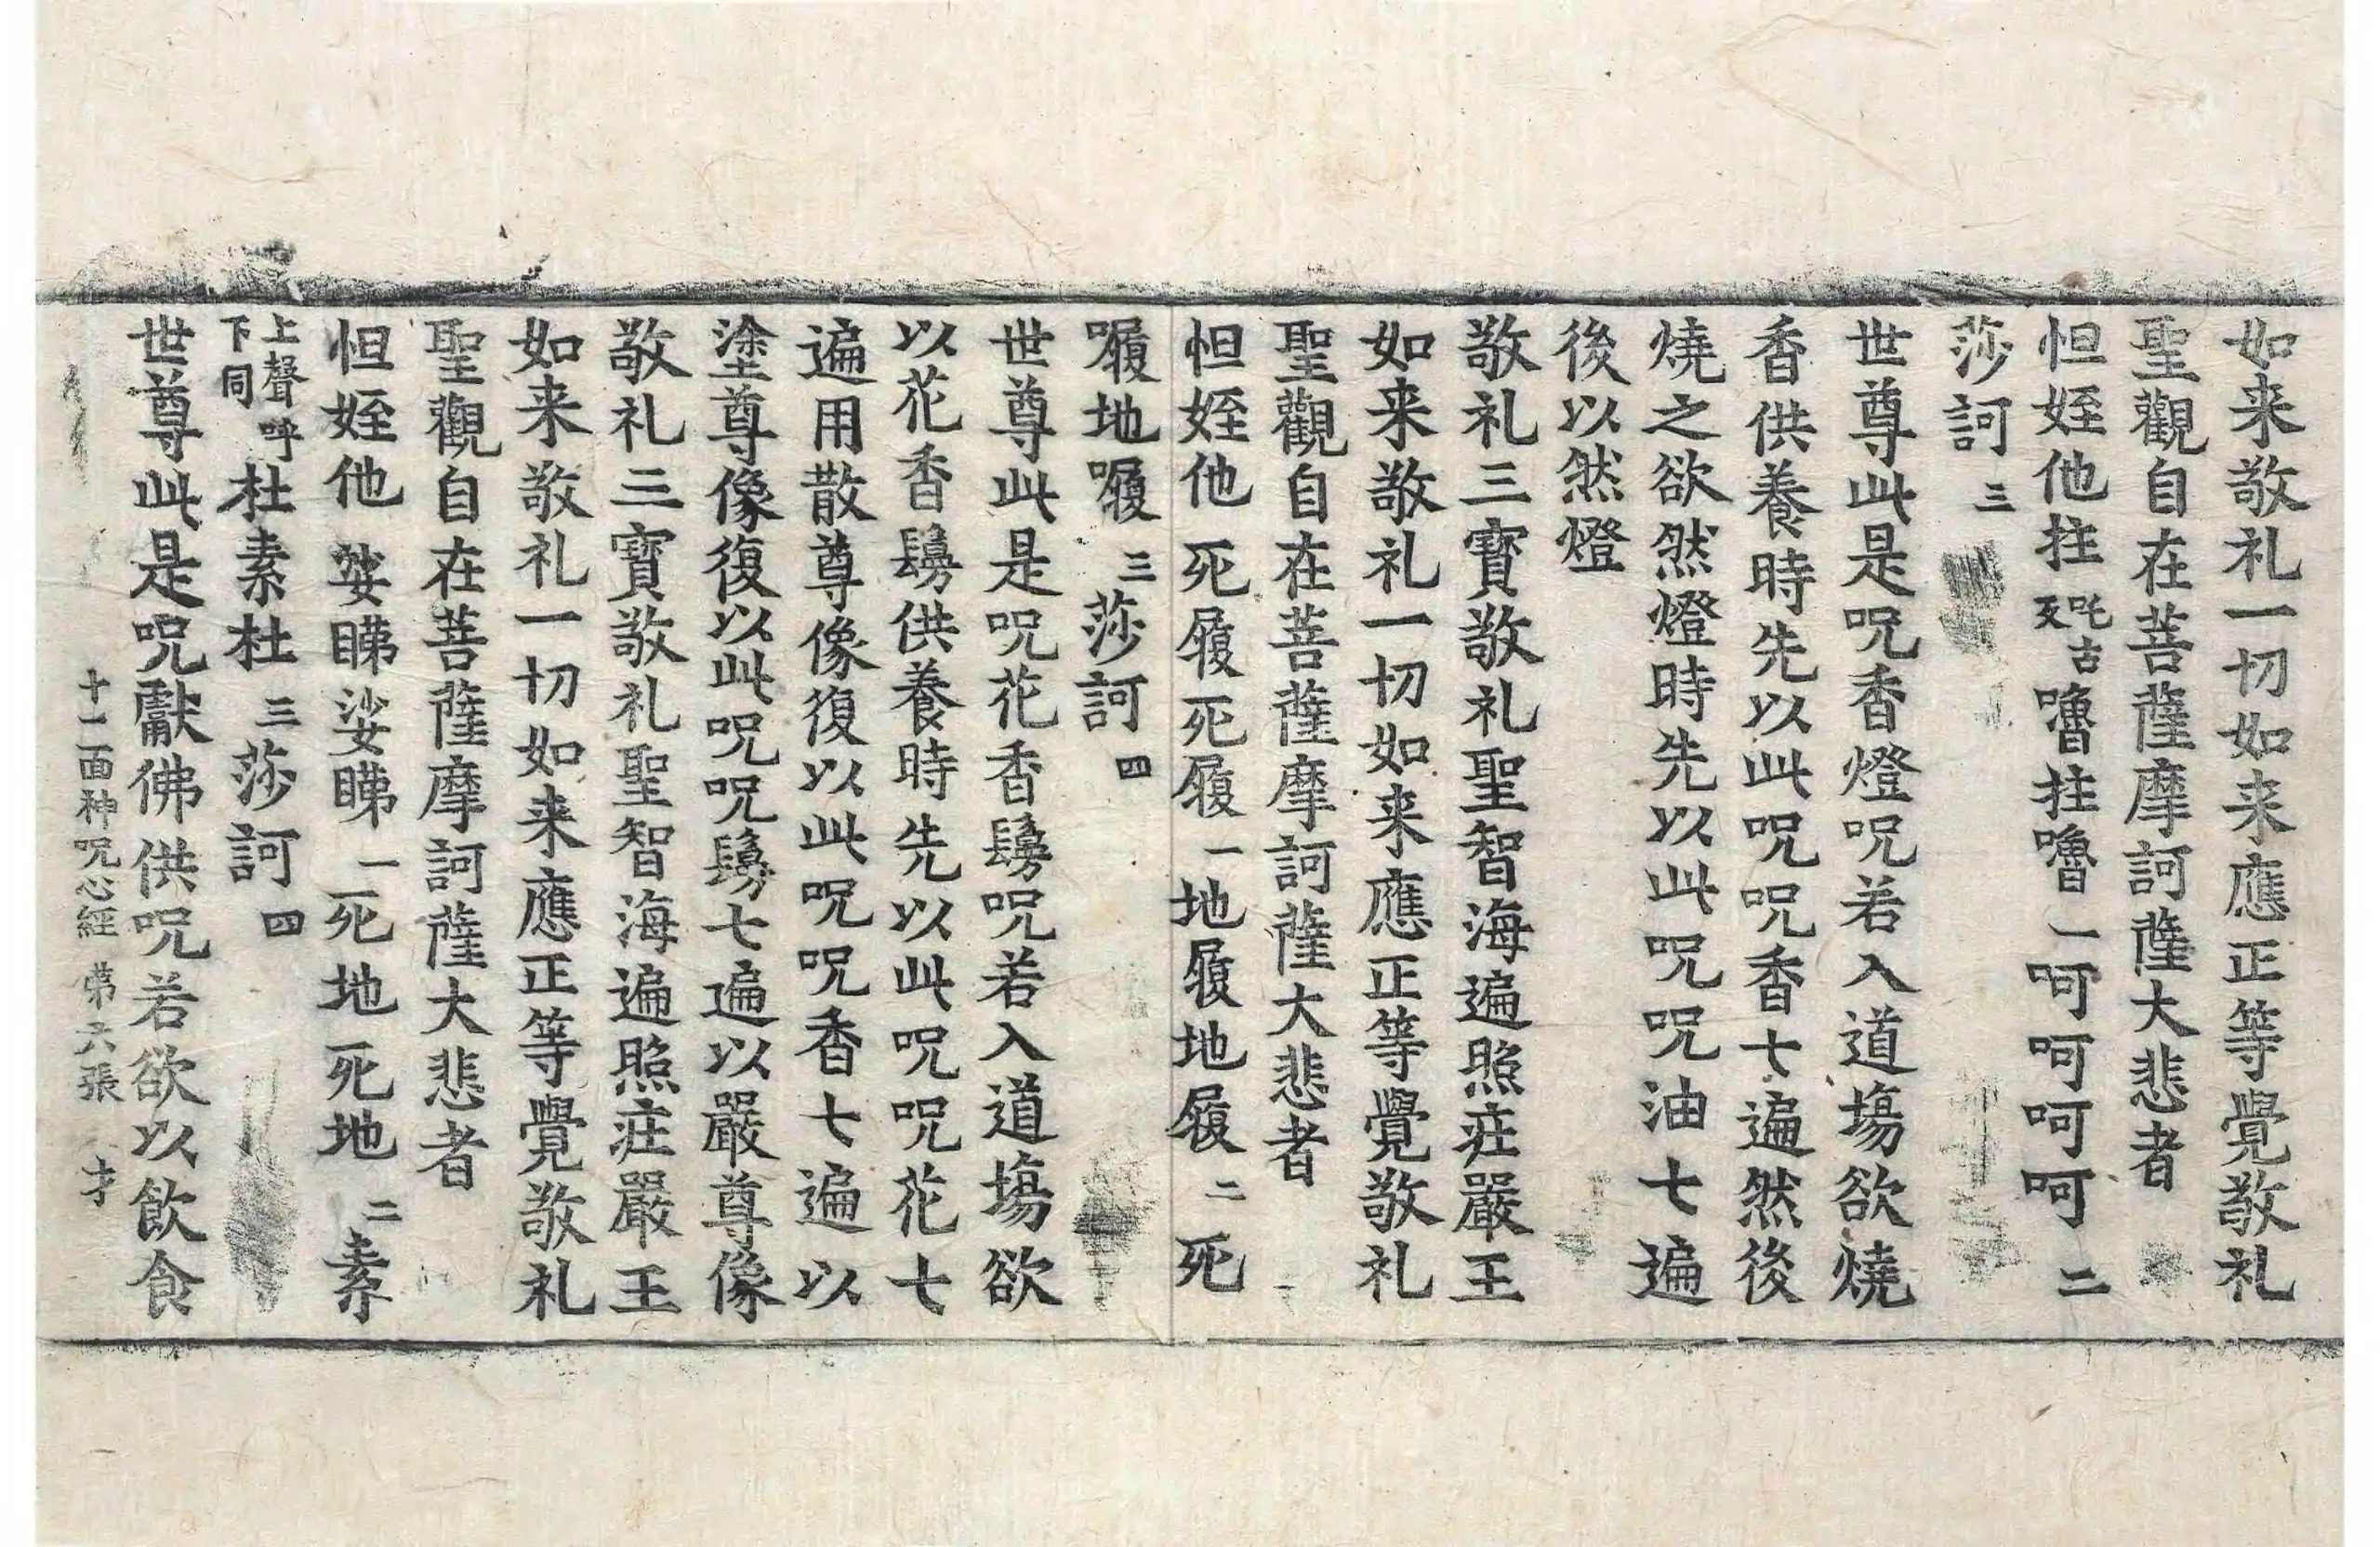 如来敬礼一切如来應正等覺敬礼
聖觀自在菩薩摩訶薩大悲者
怛姪他拄吒古反嚕拄嚕一呵呵呵呵二
莎訶三
世尊此是呪香燈呪若入道場欲燒
香供養時先以此呪呪香七遍然後
燒之欲然燈時先以此呪呪油七遍
後以然燈
敬礼三寶敬礼聖智海遍照莊嚴王
如来敬礼一切如来應正等覺敬礼
聖觀自在菩薩摩訶薩大悲者
怛姪他死履死履一地履地履二死
𡀔地𡀔三莎訶四
世尊此是呪花香鬘呪若入道場欲
以花香鬘供養時先以此呪呪花七
遍用散尊像復以此呪呪香七遍以
塗尊像復以此呪呪鬘七遍以嚴尊像
敬礼三寶敬礼聖智海遍照莊嚴王
如来敬礼一切如来應正等覺敬礼
聖觀自在菩薩摩訶薩大悲者
怛姪他娑睇娑睇一死地死地二素
上聲呼下同杜素杜三莎訶四
世尊此是呪獻佛供呪若欲以飲食
十一面神呪心經 第六張 才